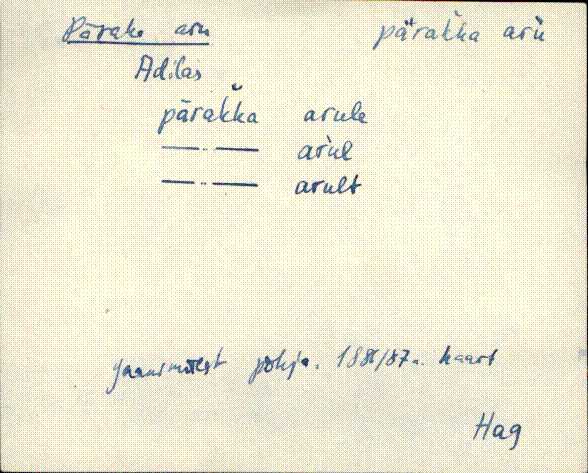 Pärake aru pärak̆ka arŭ
Adilas
pärak̆ka arule
—··— arul
—··— arult
Jaanimäest põhja. 1886/87 a. kaart
Hag